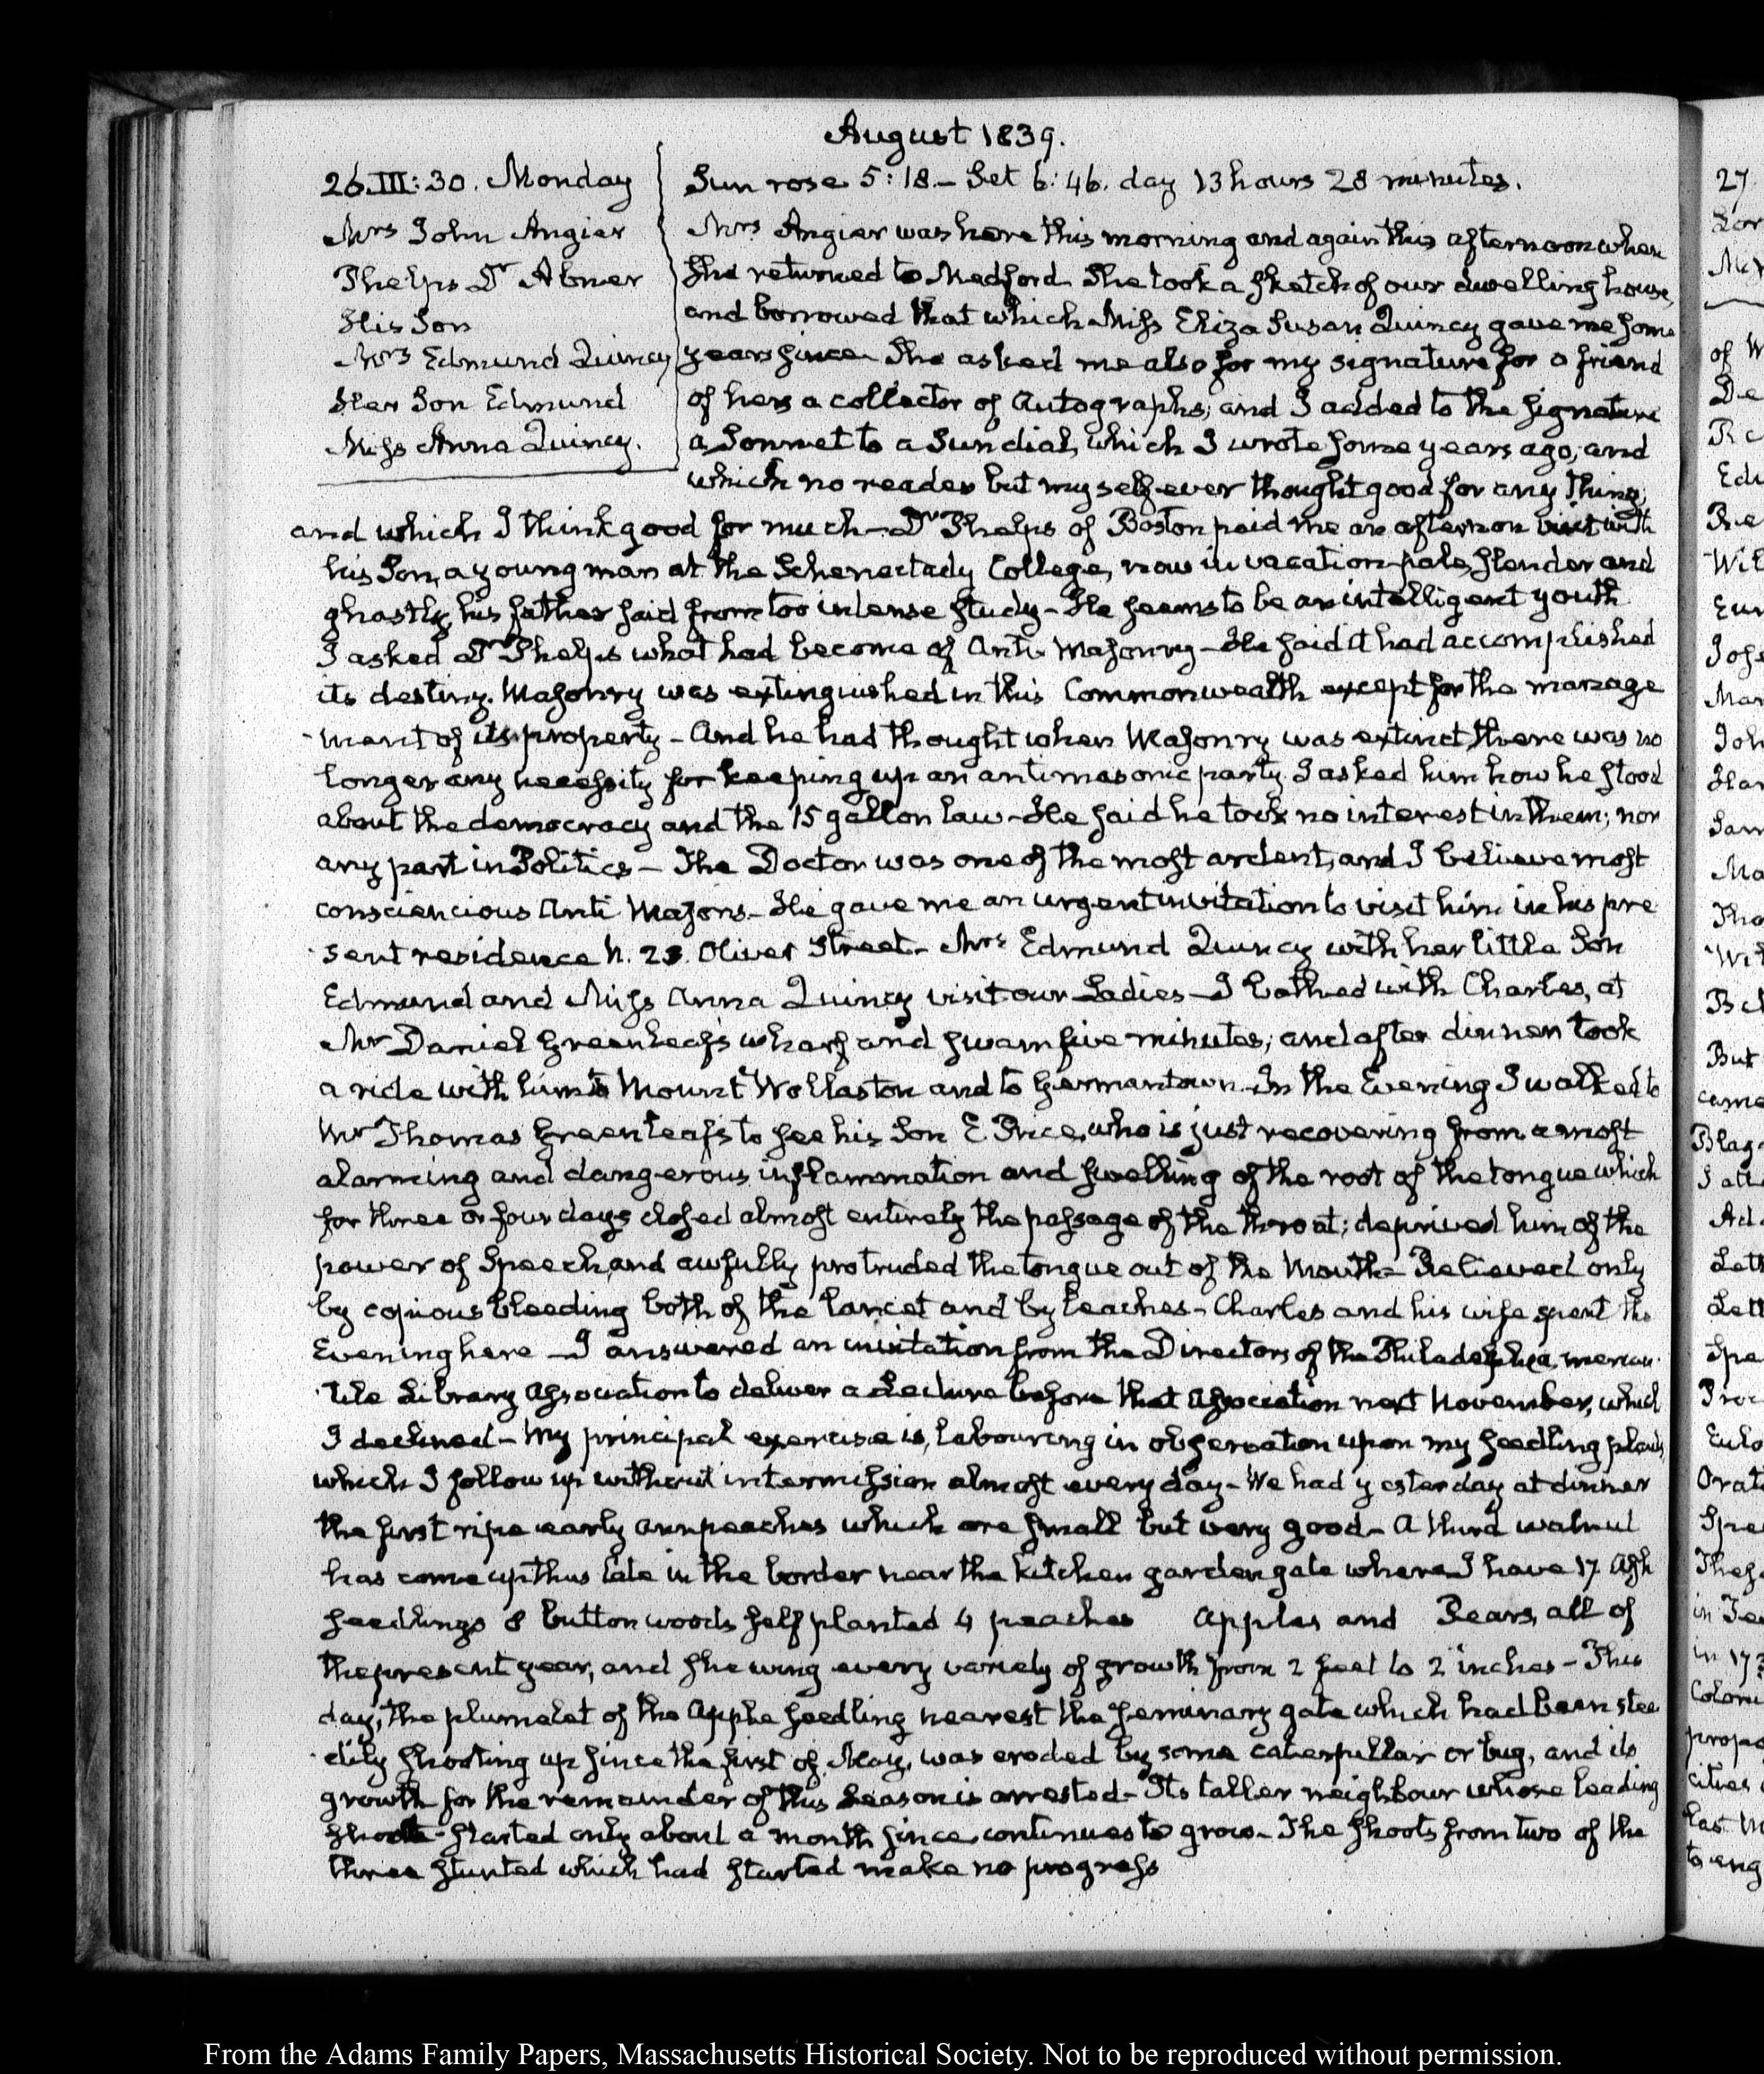 August 1839.
26. III: 30. Monday
Mrs John Angier
Phelps Dr Abner
His Son
Mrs Edmund Quincy
Her Son Edmund
Miss Anna Quincy.
Sun rose 5:18.- Set 6:46. day 13 hours 28 minutes.
Mrs Angier was here this morning and again this afternoon when
she returned to Medford. She took a sketch of our dwelling house,
and borrowed that which Miss Eliza Susan Quincy gave me some
years since. She asked me also for my signature for a friend
of hers a collector of Autographs; and I added to the signature
a Sonnet to a Sun dial, which I wrote some years ago, and
which no reader but myself ever thought good for any thing,
and which I think good for much - Dr Phelps of Boston paid me an afternoon visit with
his Son, a young man at the Schenectady College, now in vacation - pale, slender and
ghastly, his father said from too intense study - He seems to be an intelligent youth
I asked Dr Phelps what had become of Anti-Masonry - He said it had accomplished
its destiny. Masonry was extinguished in this Commonwealth except for the manage
-ment of its property - And he had thought when Masonry was extinct there was no
longer any necessity for keeping up an antimasonic party. I asked him how he stood
about the democracy and the 15 gallon law - He said he took no interest in them; nor
any part in Politics - The Doctor was one of the most ardent, and I believe most
consciencious Anti Masons - He gave me an urgent invitation to visit him in his pre
-sent residence N. 23. Oliver Street - Mrs Edmund Quincy with her little Son
Edmund and Miss Anna Quincy visit our Ladies - I bathed with Charles, at
Mr Daniel Greenleaf's wharf and swam five minutes; and after dinner took
a ride with him to Mount Wollaston and to Germantown. In the Evening I walked to
Mr Thomas Greenleaf's to see his Son E Price, who is just recovering from a most
alarming and dangerous inflammation and swelling of the root of the tongue which
for three or four days closed almost entirely the passage of the throat; deprived him of the
power of Speech, and awfully protruded the tongue out of the Mouth - Relieved only
by copious bleeding both of the lancet and by leaches - Charles and his wife spent the
Evening here - I answered an invitation from the Directors of the Philadelphia mercan
-tile Library Association to deliver a Lecture before that Association next November, which
I declined - My principal exercise is, labouring in observation upon my seedling plants,
which I follow up without intermission almost every day - We had yesterday at dinner
the first ripe early annpeaches which are small but very good - A third walnut
has come up thus late in the border near the kitchen garden gate where I have 17 Ash
seedlings 8 button woods self planted 4 peaches apples and Pears, all of
the present year, and shewing every variety of growth from 2 feet to 2 inches - This
day, the plumelet of the Apple seedling nearest the seminary gate which had been stea
-dily shooting up since the first of May, was eroded by some caterpillar or bug, and its
growth for the remainder of this Season is arrested - Its taller neighbour whose leading
shoot started only about a month since continues to grow - The shoots from two of the
three stunted which had started make no progress
27
of W
From the Adams Family Papers, Massachusetts Historical Society. Not to be reproduced without permission.